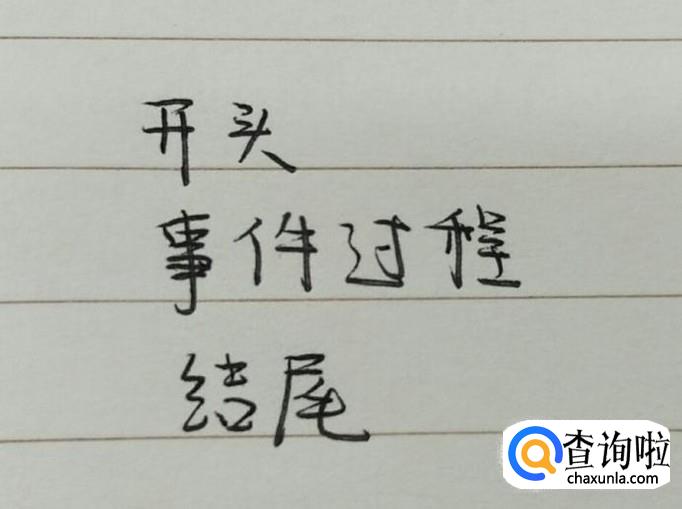 开头
事件过程
结尾
查询啦
chaxunla.com